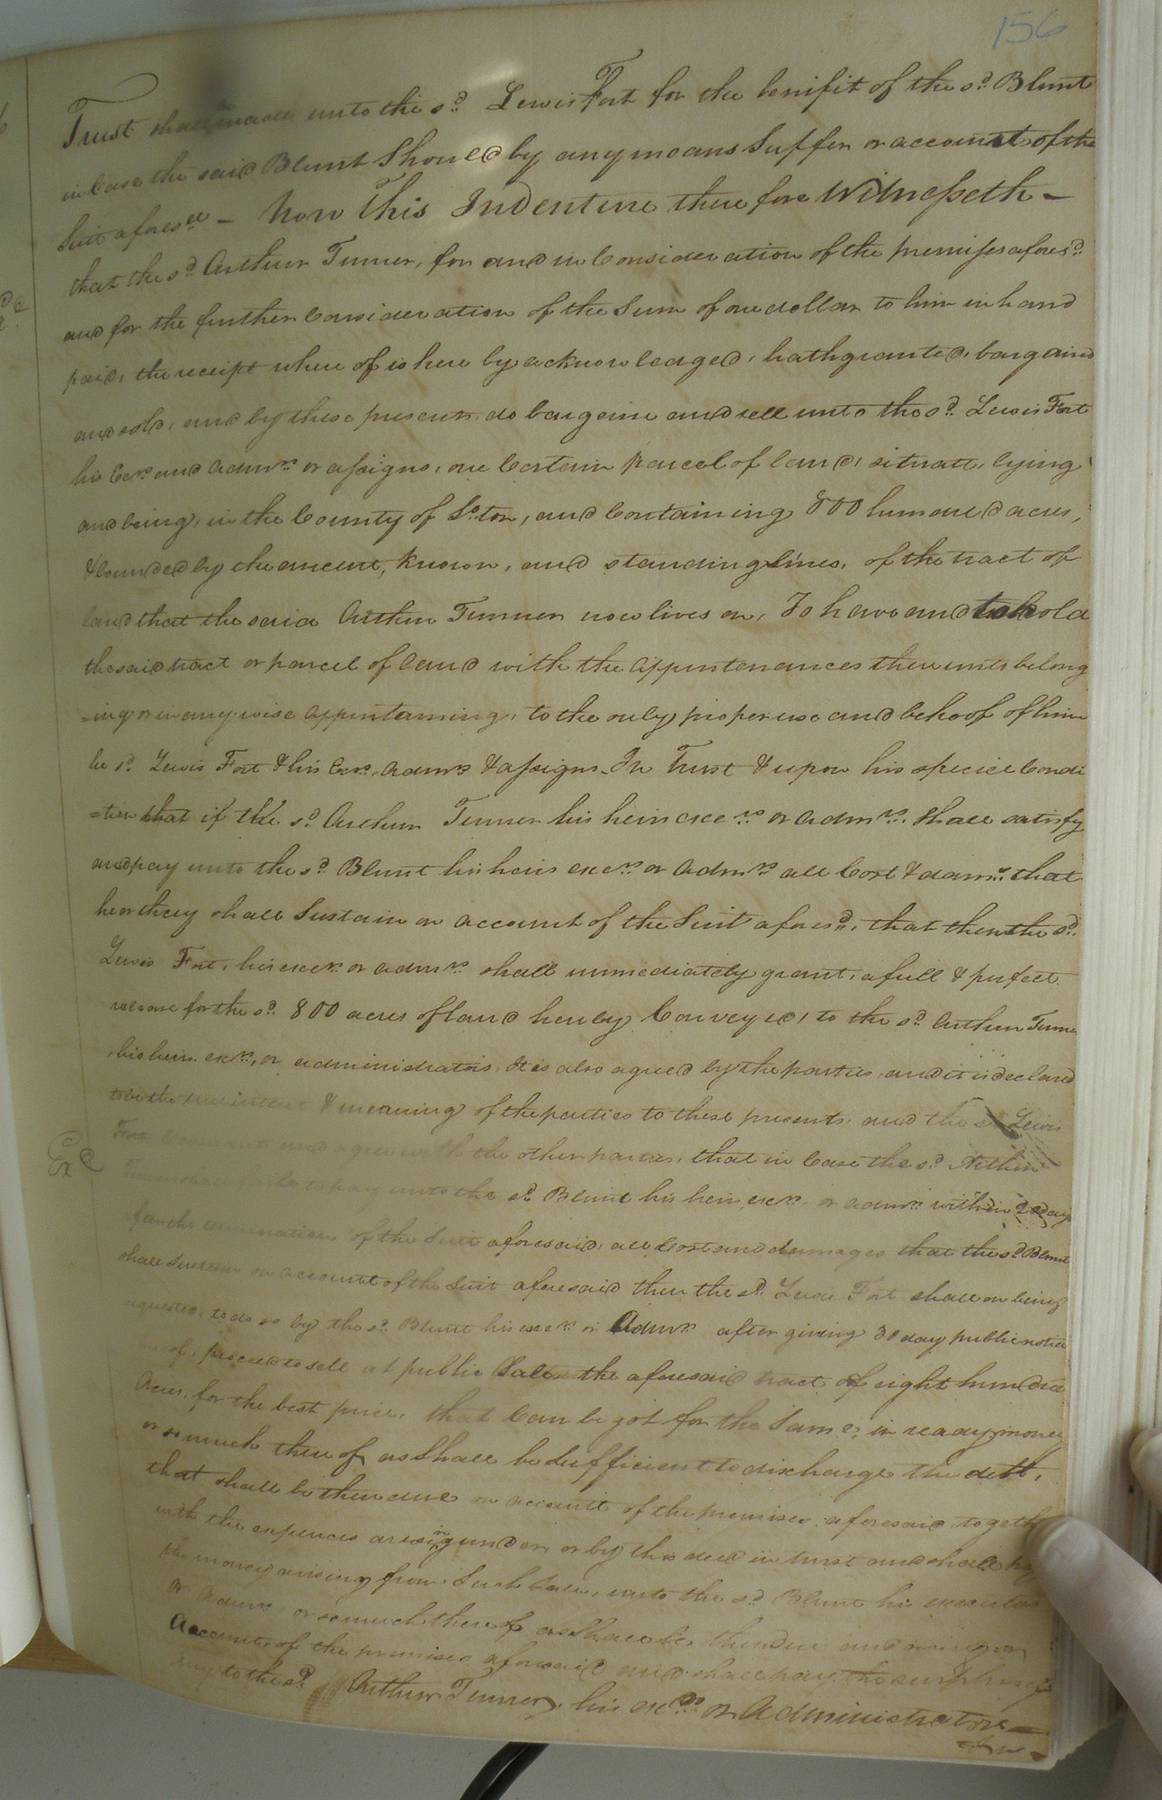 156
Trust shall inure unto the sd. Lewis Fort for the benifit of the sd. Blunt
in Case the said Blunt Should by any means Suffer on account of the
Suit aforesd — Now This Indenture there fore Witnesseth —
that the sd. Arthur Turner, for and in Consideration of the premises aforesd.
and for the further Consideration of the Sum of one dollar to him in hand
paid, the receipt where of is here by acknowledged, hath granted, bargaind
and sold, and by these presents do bargain and sell unto the sd. Lewis Fort
his Exrs and Admrs or assigns, one Certain parcel of land, situate, lying
and being, in the County of So.ton, and Containing 800 hundred acres,
& bounded by the ancient, known, and standing lines, of the tract of
land that the said Arthur Turner now lives on, To have and to hold
the said tract or parcel of land with the Appurtenances thereunto belong
=ing or in any wise appurtaining, to the only proper use and behoof of him
he sd. Lewis Fort & his Exrs. Admrs & assigns In Trust & upon his special Condi
=tion that if the sd. Arthur Turner his heirs exers or admrs. shall satisfy
and pay unto the sd. Blunt his heirs exers or Admrs all Cost & dams. that
he or they shall Sustain on account of the Suit aforesd., that then the sd.
Lewis Fort, his exers or admrs shall immediately grant, a full & perfect
release for the sd. 800 acres of land hereby Conveyed, to the sd. Arthur Turne
his heirs exrs, or administrators. It is also agreed by the parties, and it is declared
to be the true intent & meaning of the parties to these presents, and the sd. Lewis
Fort Covenants and agrees with the other parties, that in Case the sd. Arthur
to pay unto the sd. Blunt his heirs, exrs. or admrs within days
after the termination of the Suit aforesaid, all Cost and damages that the sd Blunt
shall Sustain on account of the Suit aforesaid then the sd. Lewis Fort shall on being
requested, to do so by the sd. Blunt his exers or Admrs after giving 30 day public notice
proceed to sell at public Sale the aforesaid tract of eight hundred
Acres, for the best price, that Can be got for the Same, in ready money
or so much there of as Shall be Sufficient to discharge the debt,
that shall be then due on account of the premises aforesaid, together
with the expences arising under, or by this deed in trust and shall pay
the money arising from Such Sale, unto the sd. Blunt his executors
or Admrs or so much there of as Shall be then due and owing on
Account, of the premises aforesaid and shall pay the surplus if
any to the sd. Arthur Turner, his exers or Administrators —
Exe